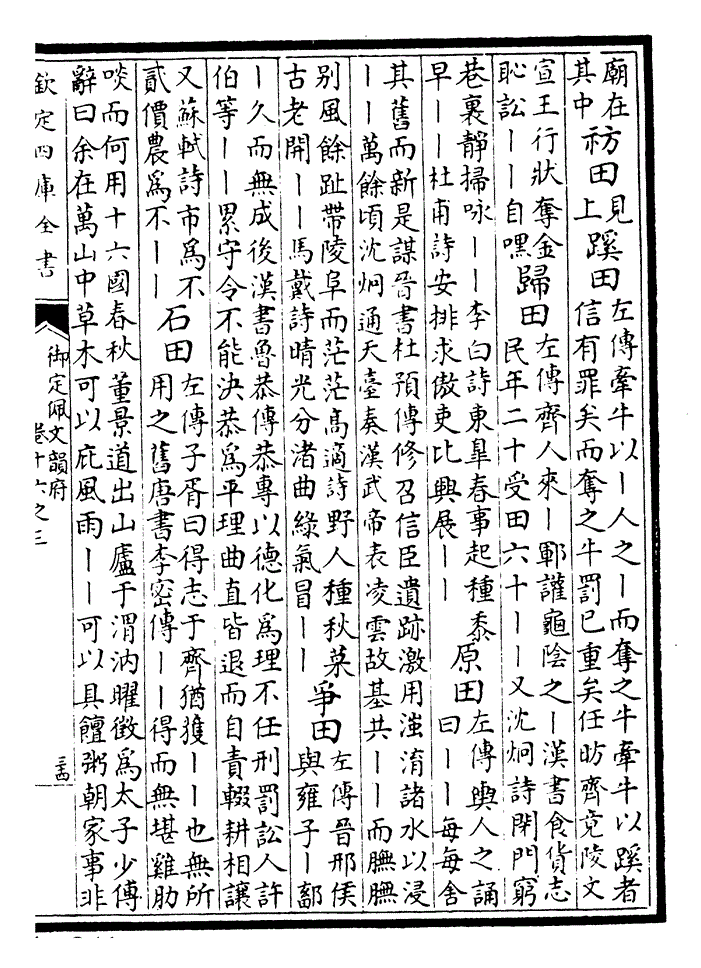 廟在
其中
祊田
見
上
蹊田
左傳牽牛以｜人之｜而奪之牛牽牛以蹊者
信有罪矣而奪之牛罰已重矣任昉齊竟陵文
宣王行狀奪金
恥訟｜｜自嘿
歸田
左傳齊人來｜鄆讙龜陰之｜漢書食貨志
民年二十受田六十｜｜又沈炯詩閉門窮
巷裏靜掃咏｜｜李白詩東臯春事起種黍
早｜｜杜甫詩安排求傲吏比興展｜｜
原田
左傳輿人之誦
曰｜｜每每舍
其舊而新是謀晉書杜預傳修召信臣遺跡激用滍淯諸水以浸
｜｜萬餘頃沈炯通天臺奏漢武帝表凌雲故基共｜｜而膴膴
别風餘趾帶陵阜而茫茫高適詩野人種秋菜
古老開｜｜馬戴詩晴光分渚曲綠氣冒｜｜
爭田
左傳晉邢侯
與雍子｜鄐
｜久而無成後漢書魯恭傳恭專以德化爲理不任刑罰訟人許
伯等｜｜累守令不能決恭爲平理曲直皆退而自責輟耕相讓
又蘇軾詩市爲不
貳價農爲不｜｜
石田
左傳子胥曰得志于齊猶獲｜｜也無所
用之舊唐書李密傳｜｜得而無堪雞肋
啖而何用十六國春秋董景道出山廬于渭汭曜徵爲太子少傅
辭曰余在萬山中草木可以庇風雨｜｜可以具饘粥朝家事非
欽定四庫全書
御定佩文韻府
卷十六之三